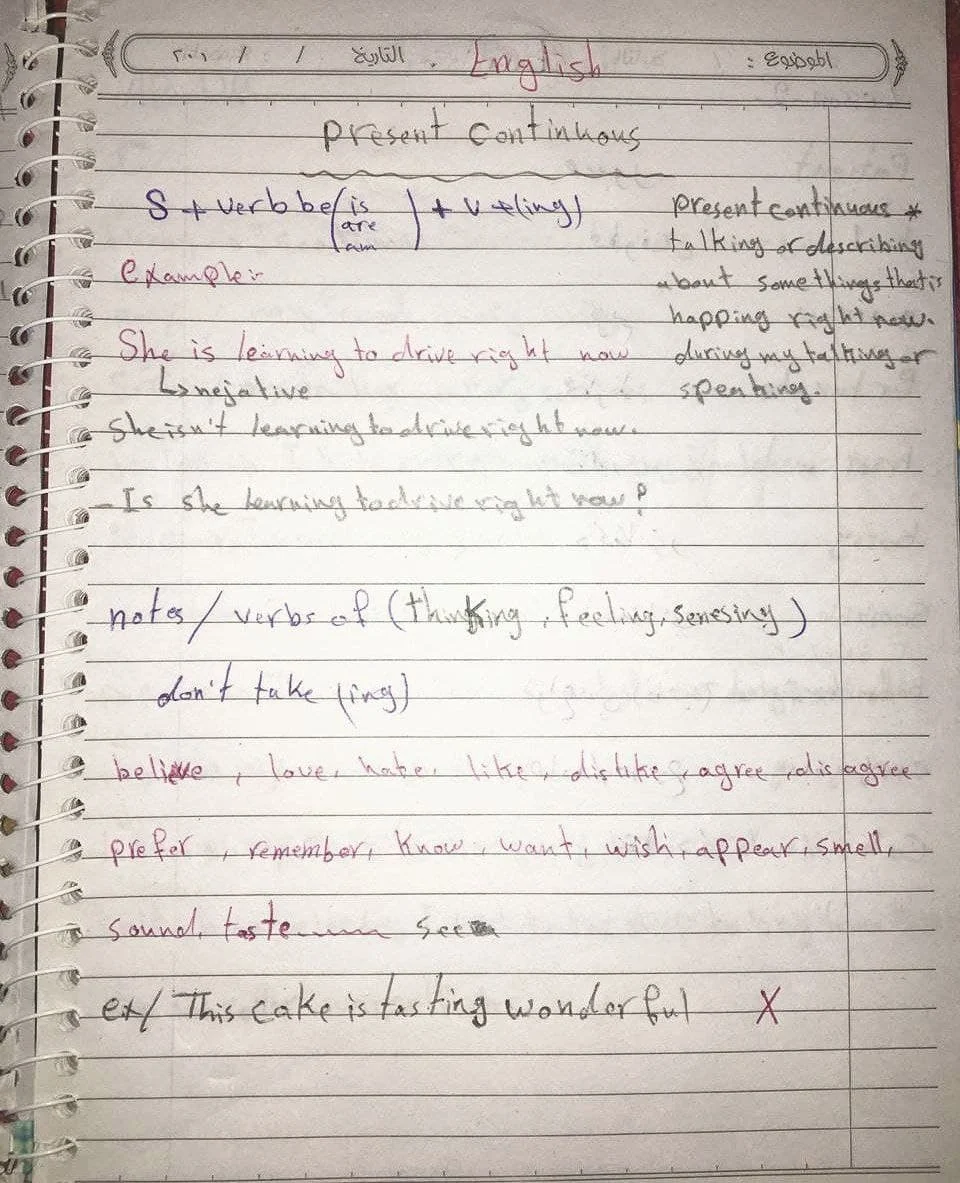 الموضوع : English . التاريخ / / ٢٠١
present continuous
S + verb be (is are am) + v + (ing)
present continuous *
talking or describing
about somethings that is
happing right now.
during my talking or
speaking.
example:-
She is learning to drive right now
↳ nejative
She isn't learning to drive right now.
- Is she learning to drive right now?
notes / verbs of (thinking, feeling, senesing)
don't take (ing)
believe, love, hate, like, dislike, agree, disagree
prefer, remember, know, want, wish, appear, smell,
sound, taste see
ex/ This cake is tasting wonderful X